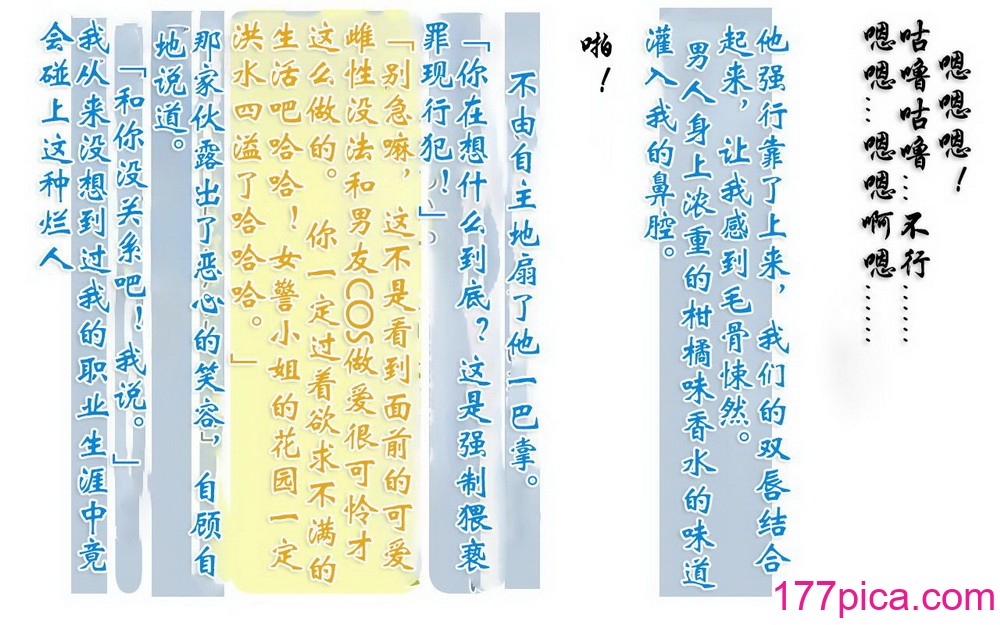 嗯嗯嗯！
咕噜咕噜…不行………
嗯嗯…嗯嗯啊嗯………
他强行靠了上来，我们的双唇结合
起来，让我感到毛骨悚然。
男人身上浓重的柑橘味香水的味道
灌入我的鼻腔。
啪！
不由自主地扇了他一巴掌。
「你在想什么到底？这是强制猥亵
罪现行犯！」。
「别急嘛，这不是看到面前的可爱
雌性没法和男友COS做爱很可怜才
这么做的。你一定过着欲求不满的
生活吧哈哈！女警小姐的花园一定
洪水四溢了哈哈哈。」
那家伙露出了恶心的笑容」，自顾自
地说道。
「和你没关系吧！我说。」
我从来没想到过我的职业生涯中竟
会碰上这种烂人
177pica.com